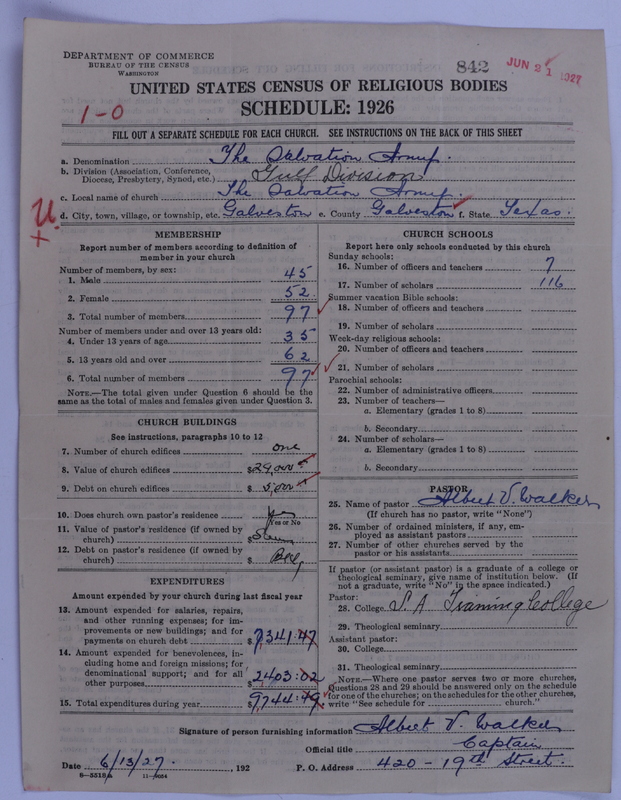 DEPARTMENT OF COMMERCE
BUREAU OF THE CENSUS
WASHINGTON
842
JUN 21 1927
UNITED STATES CENSUS OF RELIGIOUS BODIES
SCHEDULE: 1926
1-0
FILL OUT A SEPARATE SCHEDULE FOR EACH CHURCH. SEE INSTRUCTIONS ON THE BACK OF THIS SHEET
a. Denomination The Salvation Army.
b. Division (Association, Conference, Diocese, Presbytery, Synod, etc.) Gulf Division
c. Local name of church The Salvation Army.
U
+
d. City, town, village, or township, etc. Galveston e. County Galveston f. State Texas.
MEMBERSHIP
Report number of members according to definition of
member in your church
Number of members, by sex:
1. Male 45
2. Female 52
3. Total number of members 97
Number of members under and over 13 years old:
4. Under 13 years of age 35
5. 13 years old and over 62
6. Total number of members 97
NOTE.—The total given under Question 6 should be the
same as the total of males and females given under Question 3.
CHURCH BUILDINGS
See instructions, paragraphs 10 to 12
7. Number of church edifices one
8. Value of church edifices $29,000
9. Debt on church edifices $ 5,000
10. Does church own pastor's residence? Yes
Yes or No
11. Value of pastor's residence (if owned by
church) $
12. Debt on pastor's residence (if owned by
church) $
EXPENDITURES
Amount expended by your church during last fiscal year
13. Amount expended for salaries, repairs,
and other running expenses; for im-
provements or new buildings; and for
payments on church debt $ 7341.47
14. Amount expended for benevolences, in-
cluding home and foreign missions; for
denominational support; and for all
other purposes $ 2403:02
15. Total expenditures during year $ 9744:49
CHURCH SCHOOLS
Report here only schools conducted by this church
Sunday schools:
16. Number of officers and teachers 7
17. Number of scholars 116
Summer vacation Bible schools:
18. Number of officers and teachers
19. Number of scholars
Week-day religious schools:
20. Number of officers and teachers
21. Number of scholars
Parochial schools:
22. Number of administrative officers
23. Number of teachers—
a. Elementary (grades 1 to 8)
b. Secondary
24. Number of scholars—
a. Elementary (grades 1 to 8)
b. Secondary
PASTOR
25. Name of pastor Albert V. Walker
(If church has no pastor, write "None")
26. Number of ordained ministers, if any, em-
ployed as assistant pastors
27. Number of other churches served by the
pastor or his assistants
If pastor (or assistant pastor) is a graduate of a college or
theological seminary, give name of institution below. (If
not a graduate, write "No" in the space indicated.)
Pastor:
28. College S. A Training College
29. Theological seminary
Assistant pastor:
30. College
31. Theological seminary
NOTE.—Where one pastor serves two or more churches,
Questions 28 and 29 should be answered only on the schedule
for one of the churches; on the schedules for the other churches,
write "See schedule for church."
Signature of person furnishing information Albert V. Walker
Official title Captain
Date 6/13/27. , 192
P. O. Address 420 - 19th Street.
8-5518a 11-9054